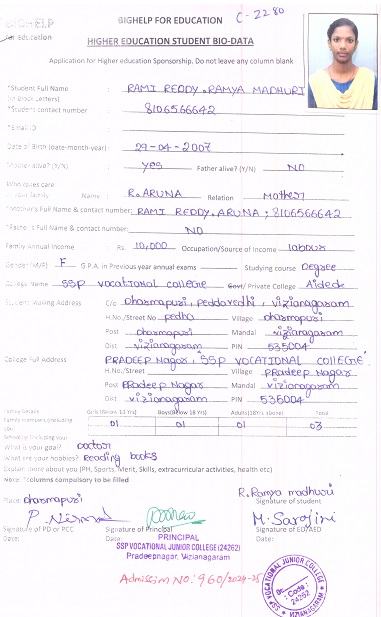 BIGHELP
for education
BIGHELP FOR EDUCATION
C-2280
HIGHER EDUCATION STUDENT BIO-DATA
Application for Higher education Sponsorship. Do not leave any column blank
*Student Full Name : RAMI REDDY . RAMYA MADHURI
(in Block Letters)
*Student contact number : 8106566642
*Email ID :
Date of Birth (date-month-year) : 29-04-2007
Mother alive? (Y/N) : yes Father alive? (Y/N) NO
Who takes care
Name : R. ARUNA Relation Mother
*Mother's Full Name & contact number: RAMI REDDY. ARUNA ; 8106566642
Full Name & contact number: NO
Family Annual Income : Rs. 10,000 Occupation/Source of Income labour
Gender (M/F) F G.P.A. in Previous year annual exams Studying course Degree
College Name SSP vocational college Govt/ Private College Aided
Student Mailing Address C/o dharmapuri, peddavedhi, vizianagaram
H.No./Street No pedha Village dharmapuri
Post dharmapuri Mandal vizianagaram
Dist vizianagaram PIN 535004
College Full Address PRADEEP Nagar, SSP VOCATIONAL COLLEGE
H.No./Street Village PRadeep Nagar
Post PRadeep Nagar Mandal vizianagaram
Dist vizianagaram PIN 535004
Family Details Girls (Below 18 Yrs) Boys(Below 18 Yrs) Adults(18Yrs above) Total
Family members (including you) 01 01 01 03
What is your goal? doctor
What are your hobbies? Reading books
Explain more about you (PH, Sports, Merit, Skills, extracurricular activities, health etc)
Note: *columns compulsory to be filled
Place: dharmapuri
R. Ramya madhuri
Signature of student
P. Nirmal
M. Sarojini
Signature of PD or PCC Signature of Principal Signature of ED/AED
Date: Date: Date:
PRINCIPAL
SSP VOCATIONAL JUNIOR COLLEGE (24262)
Pradeepnagar, Vizianagaram
Admission NO: 960/2024-25
SSP VOCATIONAL JUNIOR COLLEGE
Code:
24262
VIZIANAGARAM